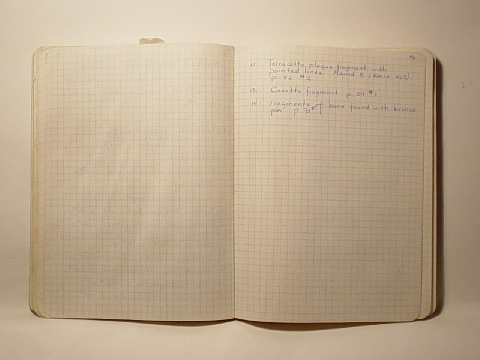 12. Terracotta plaque fragment with
painted lines. Mound B.
p. 52 #2
13. Cavetto fragment p. 54 #1
14. Fragments of bone found with bronze
pan p.